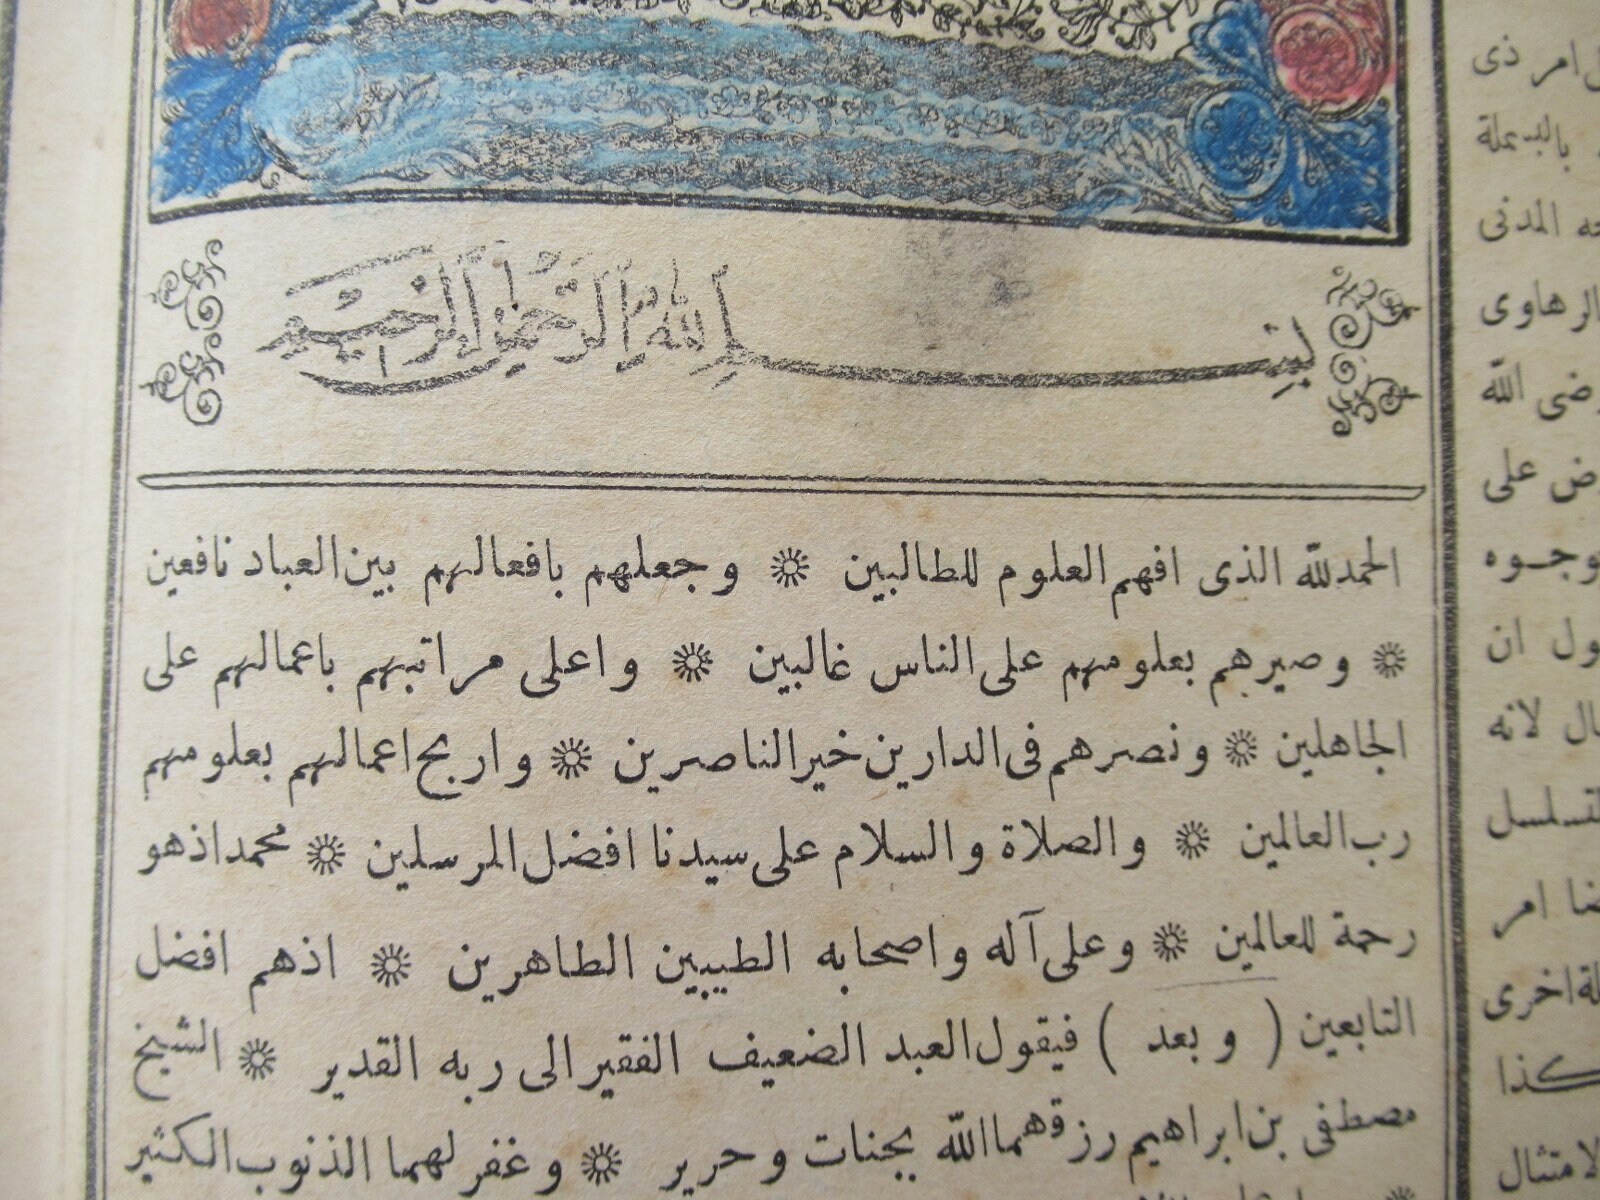 بسم الله الرحمن الرحيم
الحمدلله الذى افهم العلوم للطالبين ۞ وجعلهم بافعالهم بين العباد نافعين
۞ وصيرهم بعلومهم على الناس غالبين ۞ واعلى مراتبهم باعمالهم على
الجاهلين ۞ ونصرهم فى الدارين خير الناصرين ۞ واربح اعمالهم بعلومهم
رب العالمين ۞ والصلاة والسلام على سيدنا افضل المرسلين ۞ محمد اذهو
رحمة للعالمين ۞ وعلى آله واصحابه الطيبين الطاهرين ۞ اذهم افضل
التابعين ( وبعد ) فيقول العبد الضعيف الفقير الى ربه القدير ۞ الشيخ
مصطفى بن ابراهيم رزقهما الله بجنات وحرير ۞ وغفر لهما الذنوب الكثير
امر ذى
بالبسملة
المدنى
الرهاوى
رضى الله
على
وجوه
ان
لانه
امر
اخرى